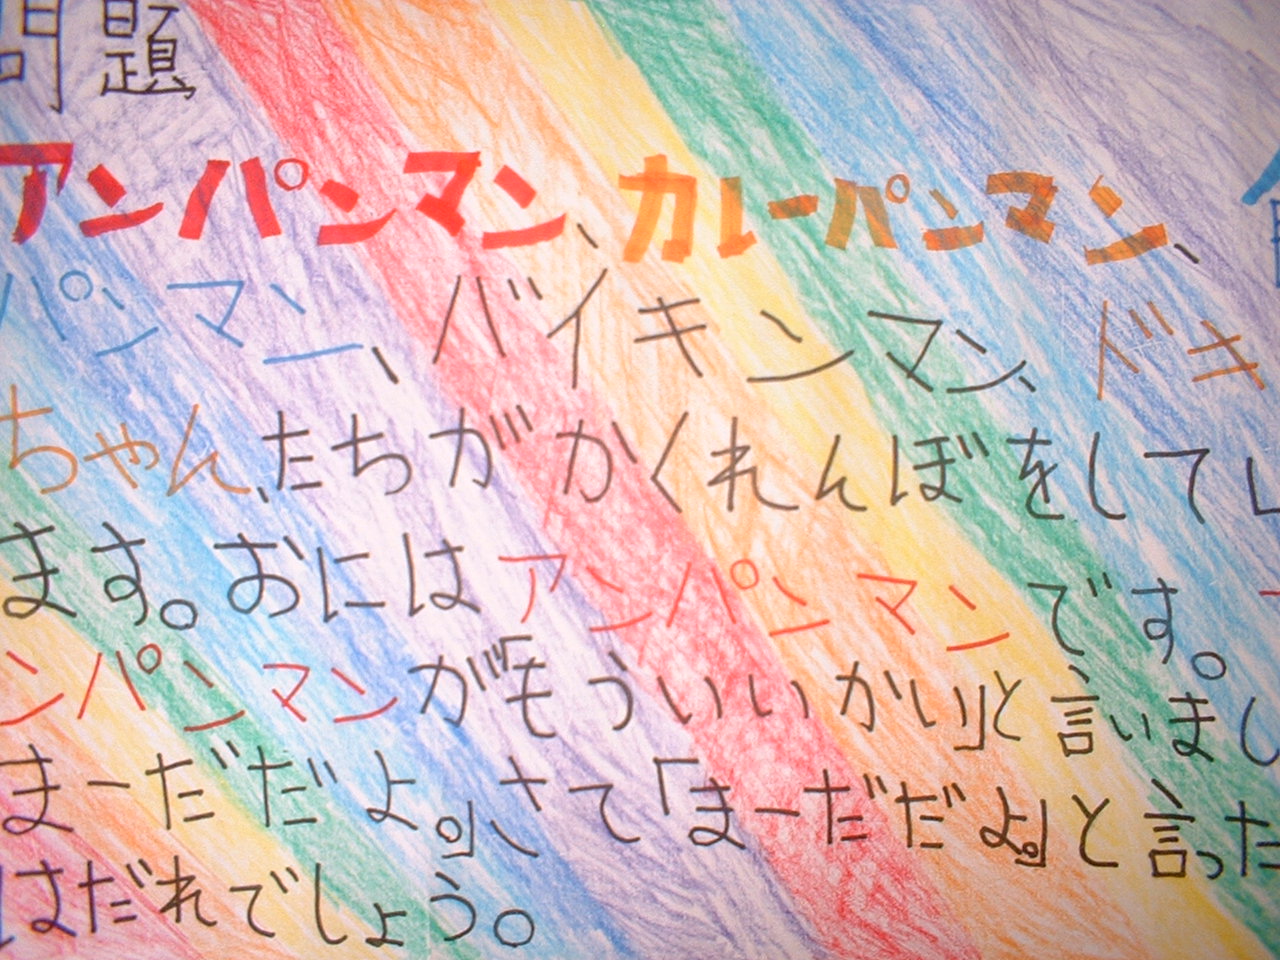 問題
アンパンマン、カレーパンマン、
パンマン、バイキンマン、ドキ
ちゃん、たちがかくれんぼをしてい
ます。おにはアンパンマンです。
ンパンマンが「もういいかい」と言いまし
まーだだよ。」さて「まーだだよ。」と言った
はだれでしょう。